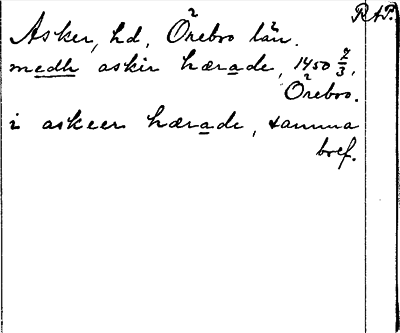 RAP.
Asker, hd, Örebro län.
medh askir hærade, 1450 7/3,
Örebro.
i askeer hærade, samma
bref.